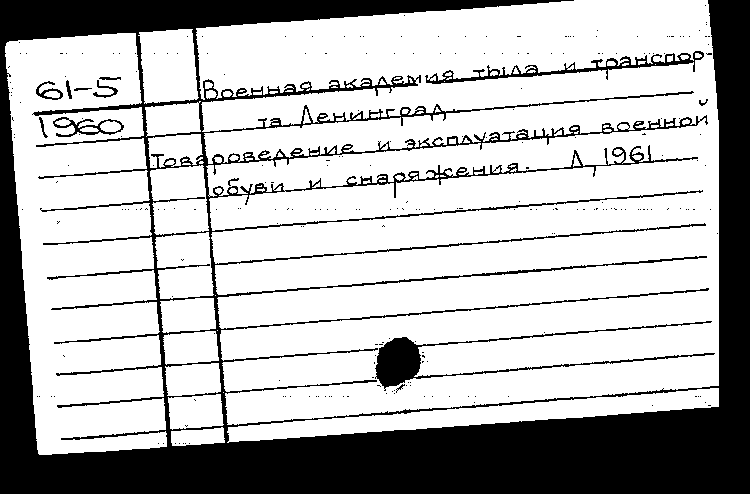 61-5 Военная академия тыла и транспор-
1960 та Ленинград.
Товароведение и эксплуатация военной
обуви и снаряжения. Л, 1961.